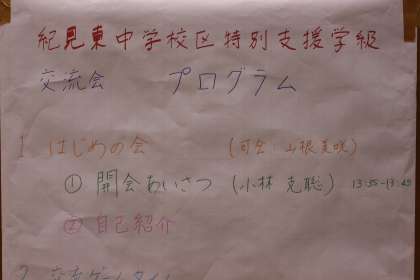 紀見東中学校区特別支援学級
交流会 プログラム
1 はじめの会 (司会:山根美咲)
① 開会あいさつ (小林 克聡) 13:35-13:45
② 自己紹介